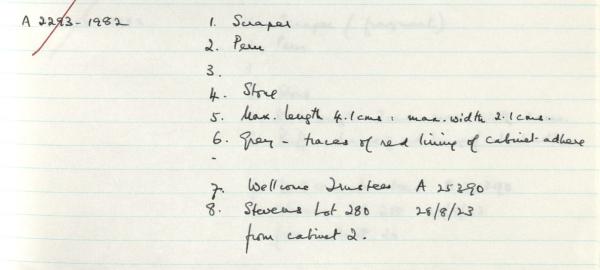 A 2293-1982 1. Scraper
2. Peru
3.
4. Stone
5. Max. length 4.1cms : max. width 2.1cms.
6. Grey - traces of red lining of cabinet adhere
-
7. Wellcome Trustees A 25390
8. Stevens Lot 280 28/8/23
from cabinet 2.